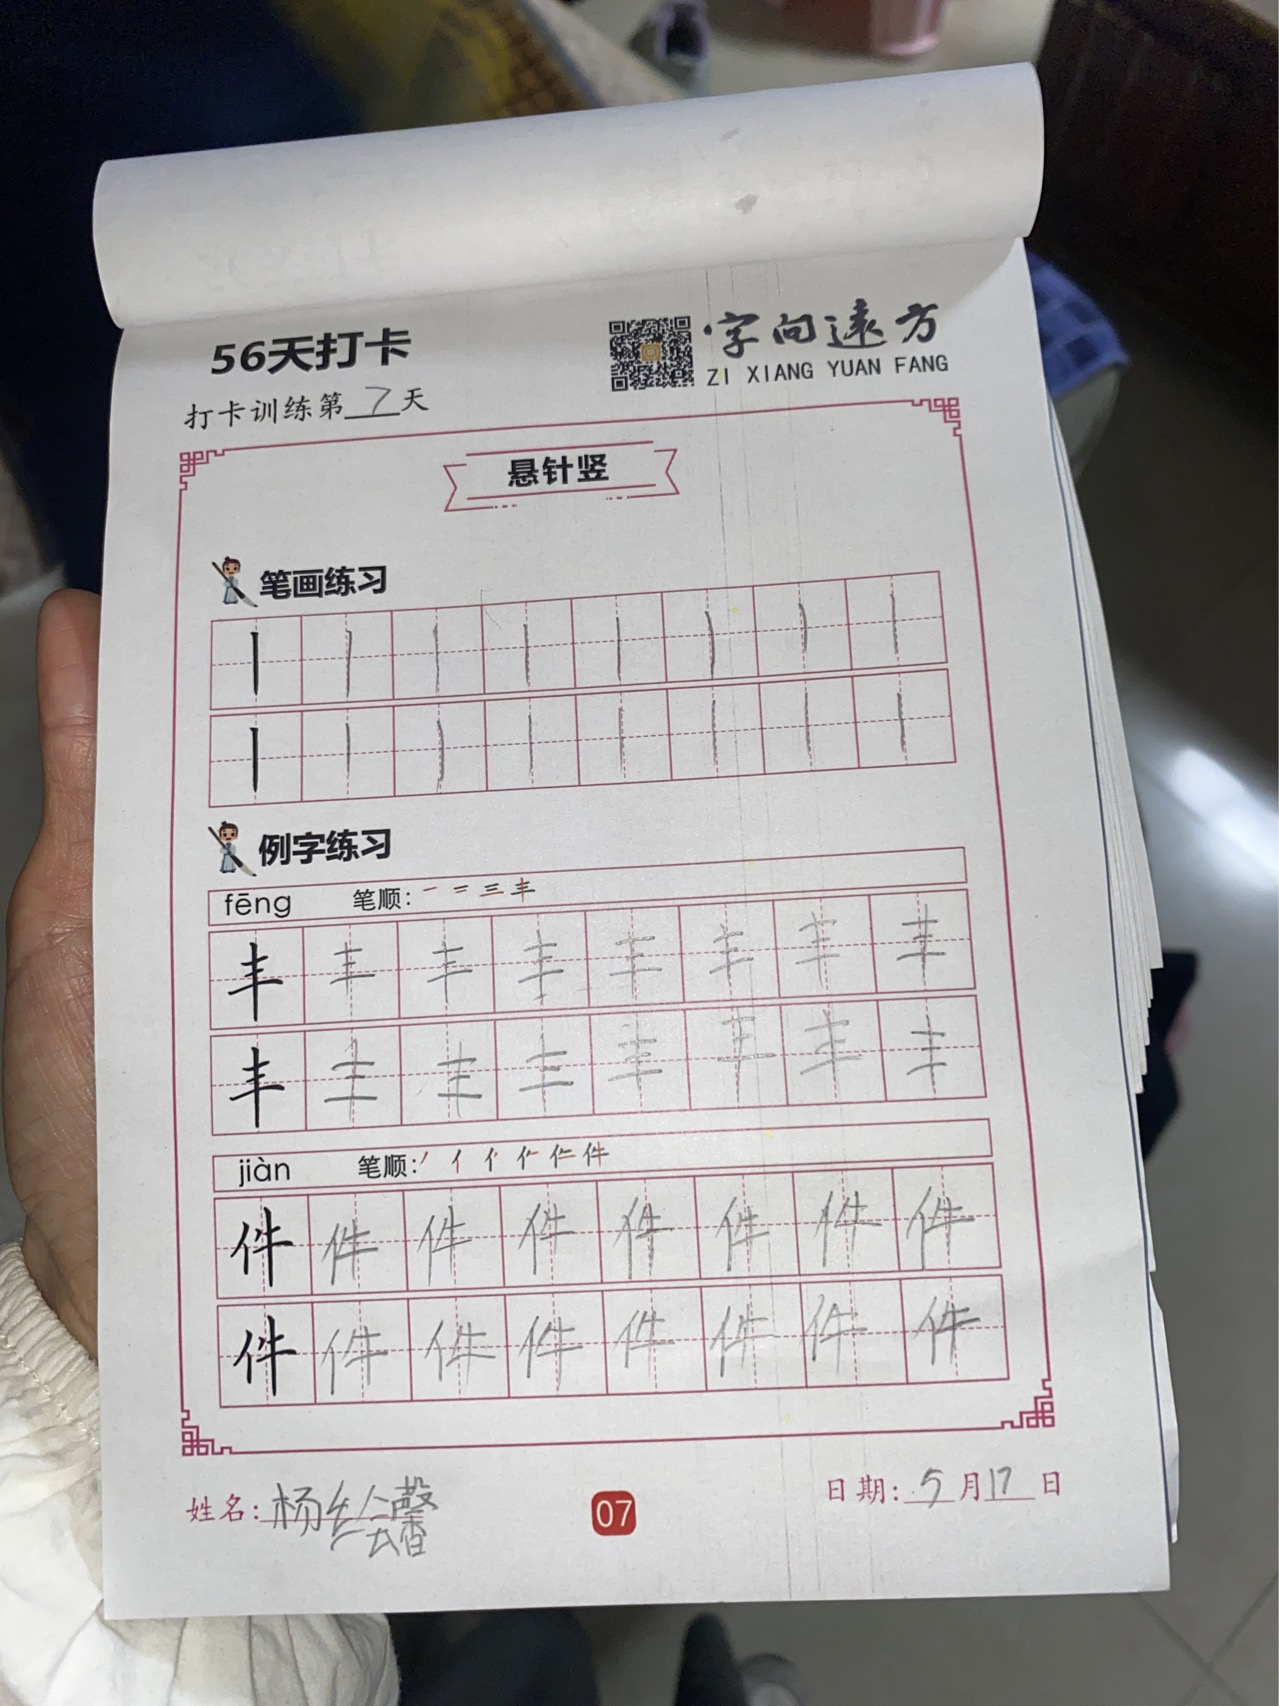 56天打卡
字向遠方
ZI XIANG YUAN FANG
打卡训练第7天
悬针竖
笔画练习
例字练习
fēng 笔顺: 一 二 三 丰
丰 丰 丰 丰 丰 丰 丰 丰
丰 丰 丰 丰 丰 丰 丰 丰
jiàn 笔顺: 件
件 件 件 件 件 件 件 件
件 件 件 件 件 件 件 件
姓名: 杨绘馨
07
日期: 5月17日